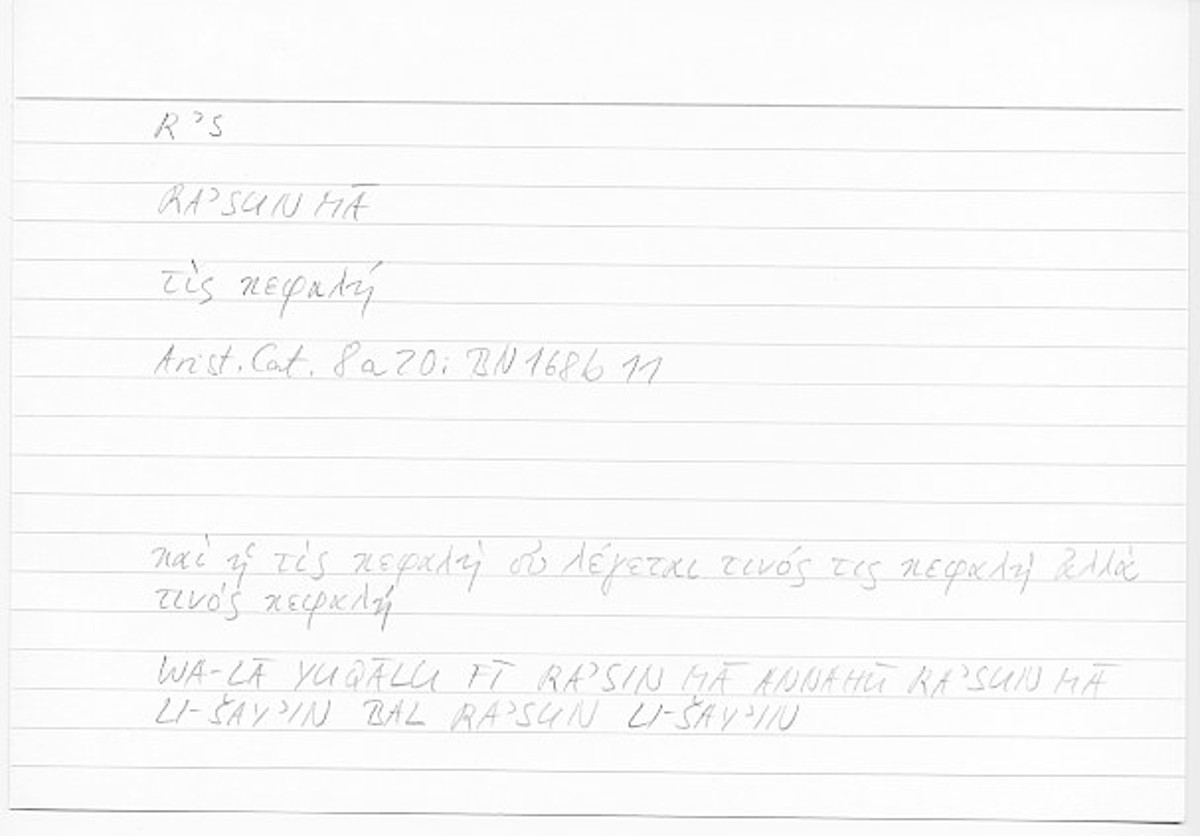 RʾS
RAʾSUN MĀ
τὶς κεφαλή
Arist. Cat. 8a20; BN 168b 11
καὶ ἡ τὶς κεφαλὴ οὐ λέγεται τινός τις κεφαλὴ ἀλλὰ
τινὸς κεφαλή
WA-LĀ YUQĀLU FĪ RAʾSIN MĀ ANNAHŪ RAʾSUN MĀ
LI-ŠAYʾIN BAL RAʾSUN LI-ŠAYʾIN